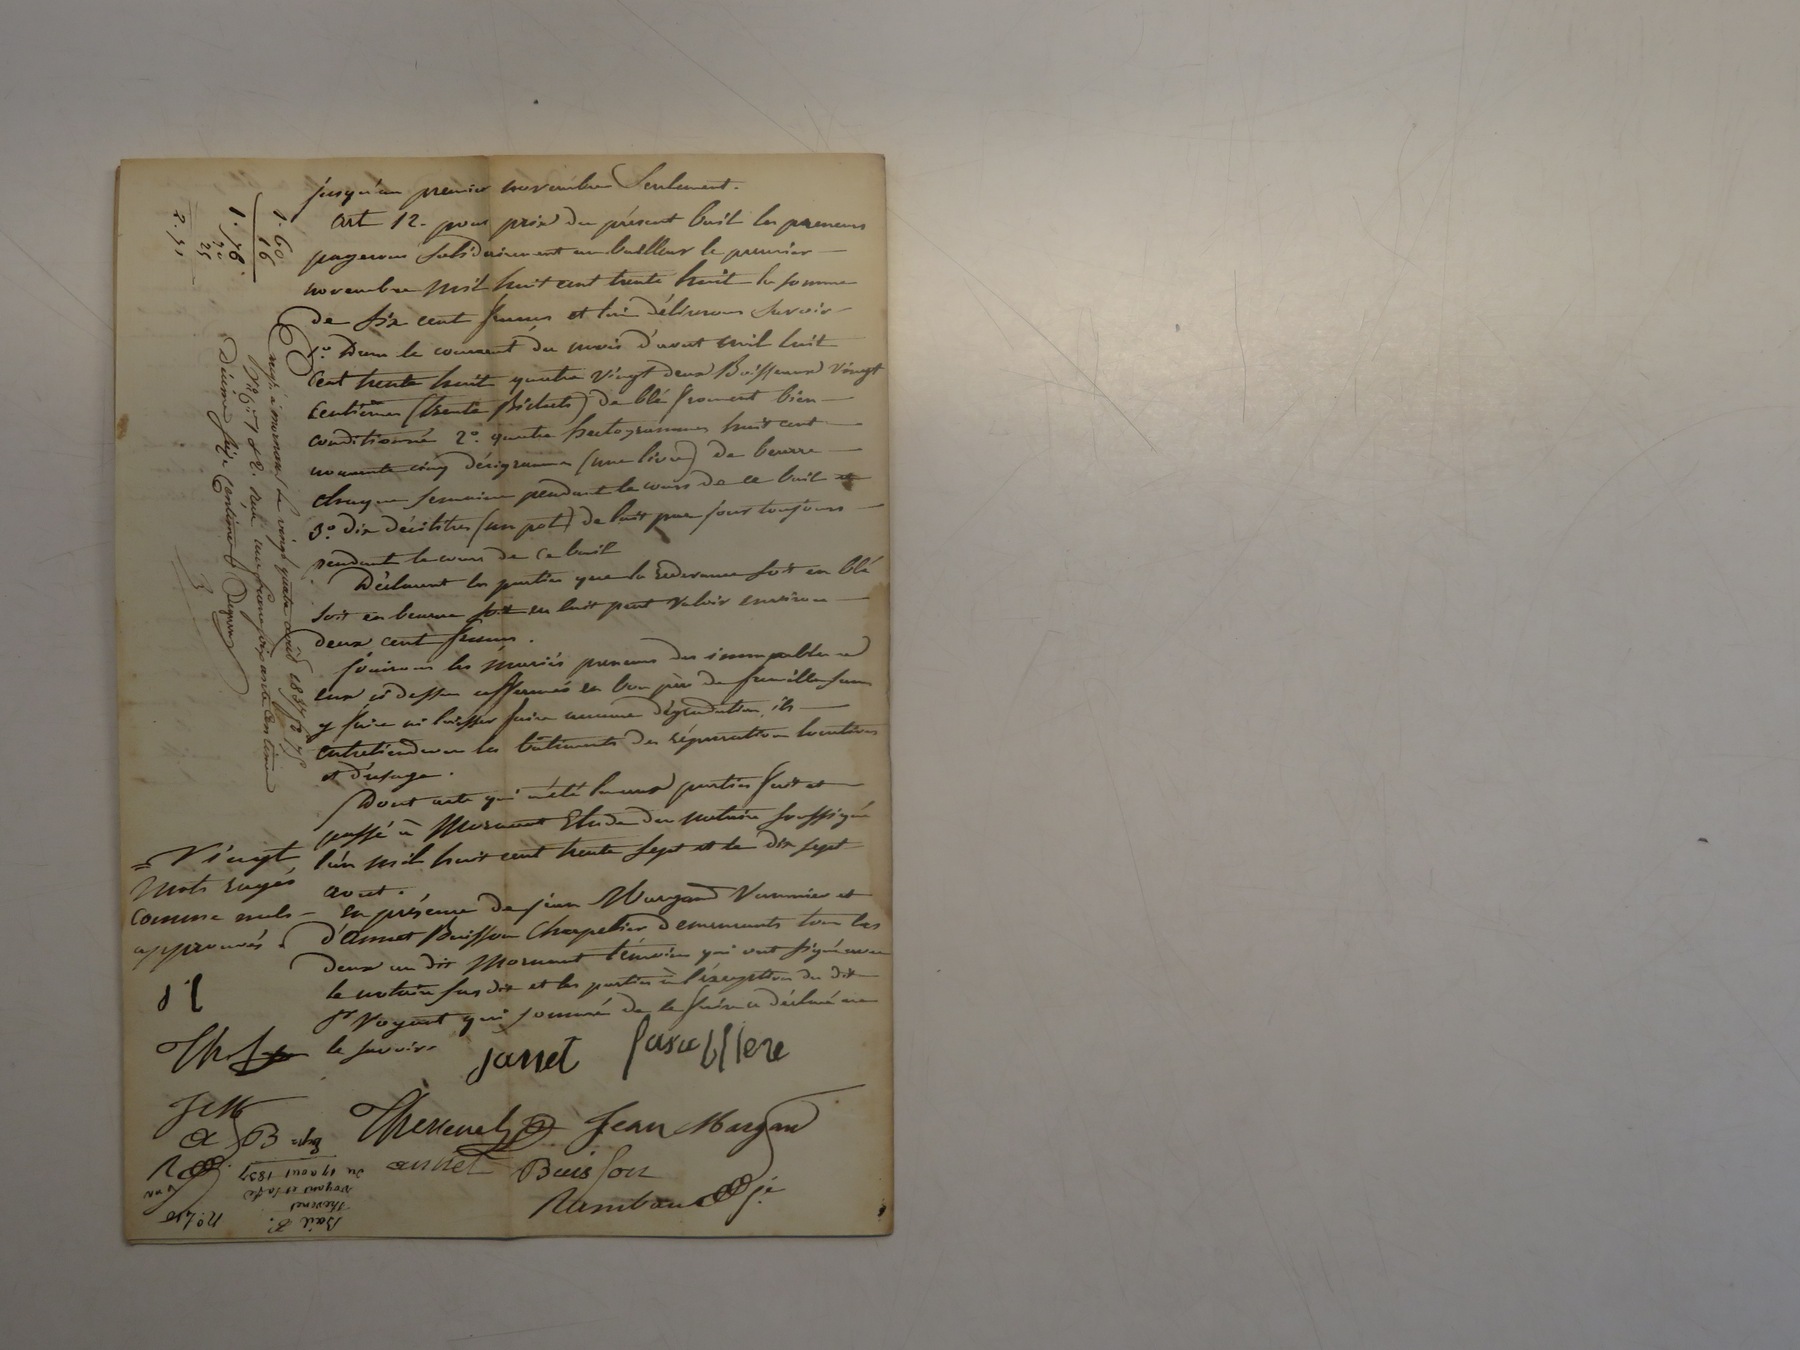 jusqu'au premier novembre Seulement.
art 12. pour prix du présent bail les preneurs
payerons solidairement au bailleur le premier
novembre mil huit cent trente huit la somme
de six cent francs et lui délivrerons Savoir
1º. Dans le courant du mois d'aout mil huit
cent trente huit quatre vingt deux Boisseaux Vingt
centièmes (trente Bichets) de blé froment bien
conditionné 2º. quatre hectogrammes huit cent
nonante cinq décigrammes (une livre) de beurre
chaque semaine pendant le cours de ce bail et
3º. dix décilitres (un pot) de lait par jour toujours
pendant le cours de ce bail
Déclarent les parties que la Redevance soit en blé
soit en beurre soit en lait peut valoir environ
deux cent francs.
Jouirons les mariés preneurs des immeubles a
eux ci dessus affermés en bon père de famille sans
y faire ni laisser faire aucune dégradation, ils
entretiendrons les bâtiments des réparations locatives
et d'usage.
Dont acte qui a été lu aux parties fait et
passé à Mornant Etude du notaire soussigné
l'an mil huit cent trente sept et le dix sept
aout.
en présence de jean Margand Vannier et
d'annet Buisson Charpentier demeurants tous les
deux au dit Mornant témoins qui ont signé avec
le notaire sus dit et les parties à l'exception du dit
Sr Voyant qui sommé de le faire a déclaré ne
le savoir.
janet
Thevenet
Jean Margand
annet Buisson
Rambaud
= Vingt
Mots rayés
comme nuls
approuvés.
1. 60
16
1. 76
25
Enregé à mornant le vingt quatre août 1837 fº 75
Rº Vº 1 & 2. Reçu un franc soixante centimes
Décime seize centimes
Bail P.
Thevenet
du 17 aout 1837